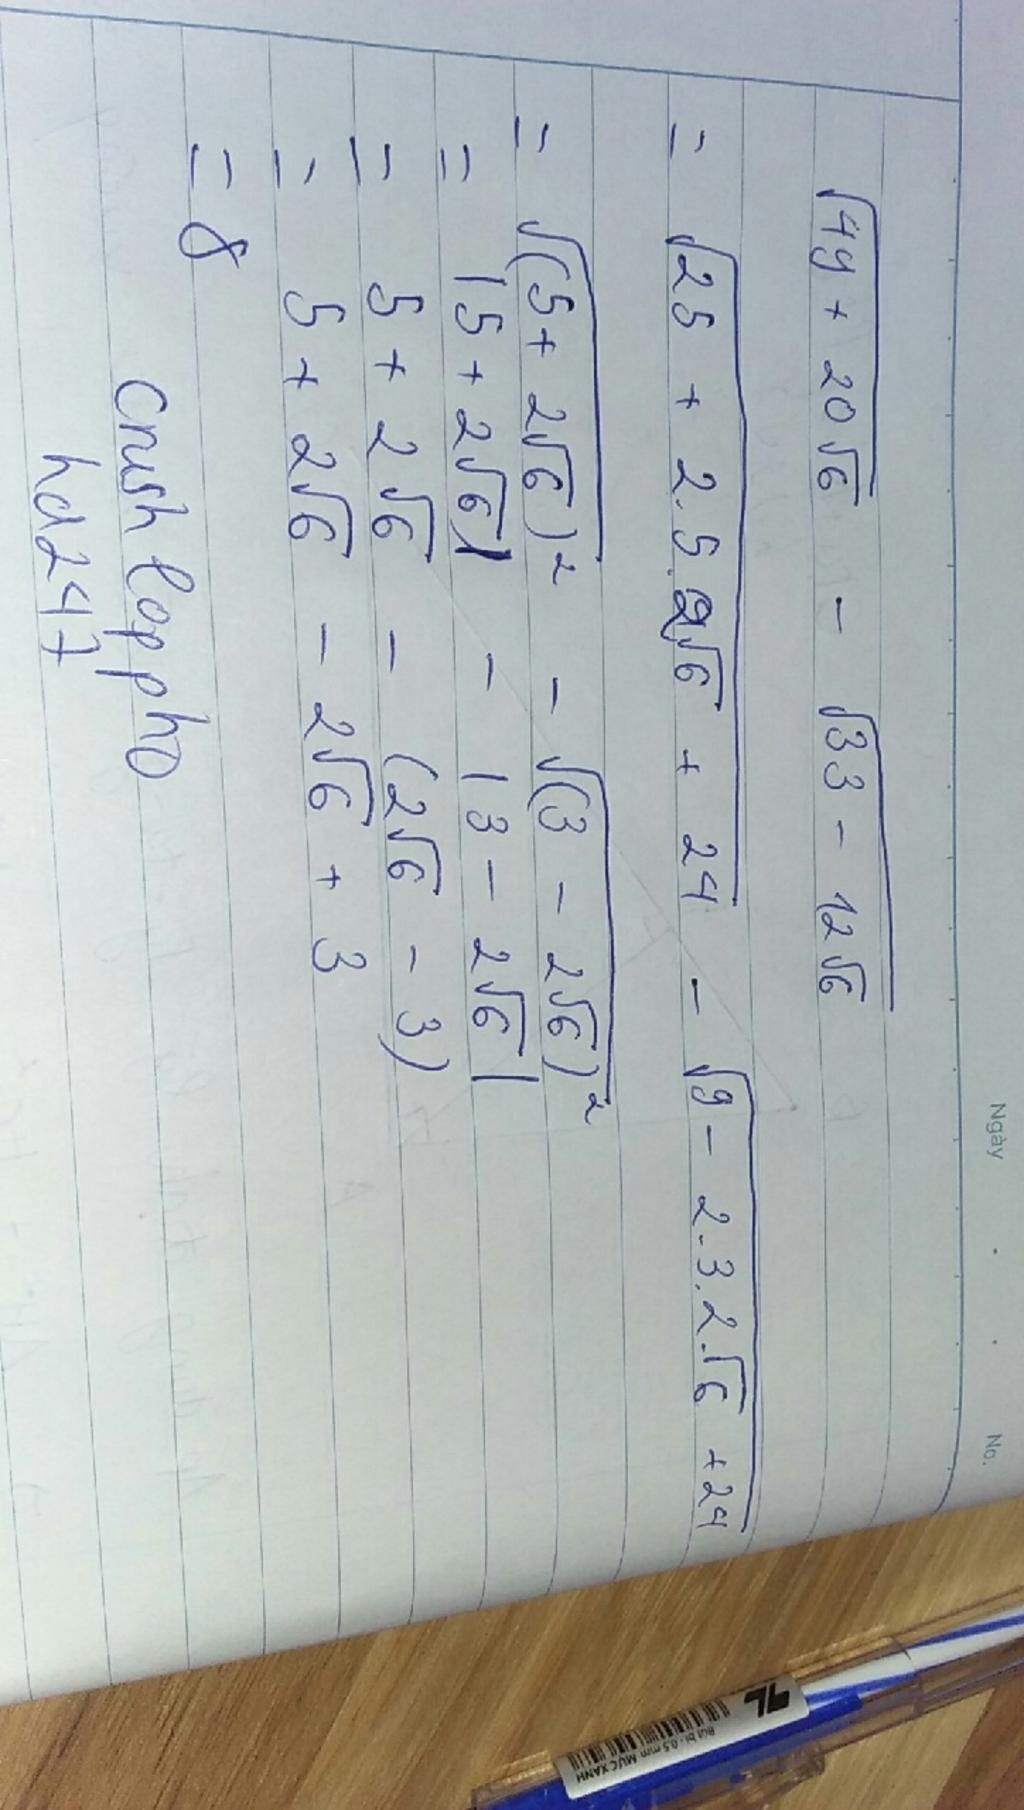 Ngày . . No.
√49 + 20√6 - √33 - 12√6
= √25 + 2.5.2√6 + 24 - √9 - 2.3.2.√6 + 24
= √(5 + 2√6)² - √(3 - 2√6)²
= |5 + 2√6| - |3 - 2√6|
= 5 + 2√6 - (2√6 - 3)
= 5 + 2√6 - 2√6 + 3
= 8
Crush lop pho
hd247
TL
Bút bi - 0.5 mm MỰC XANH